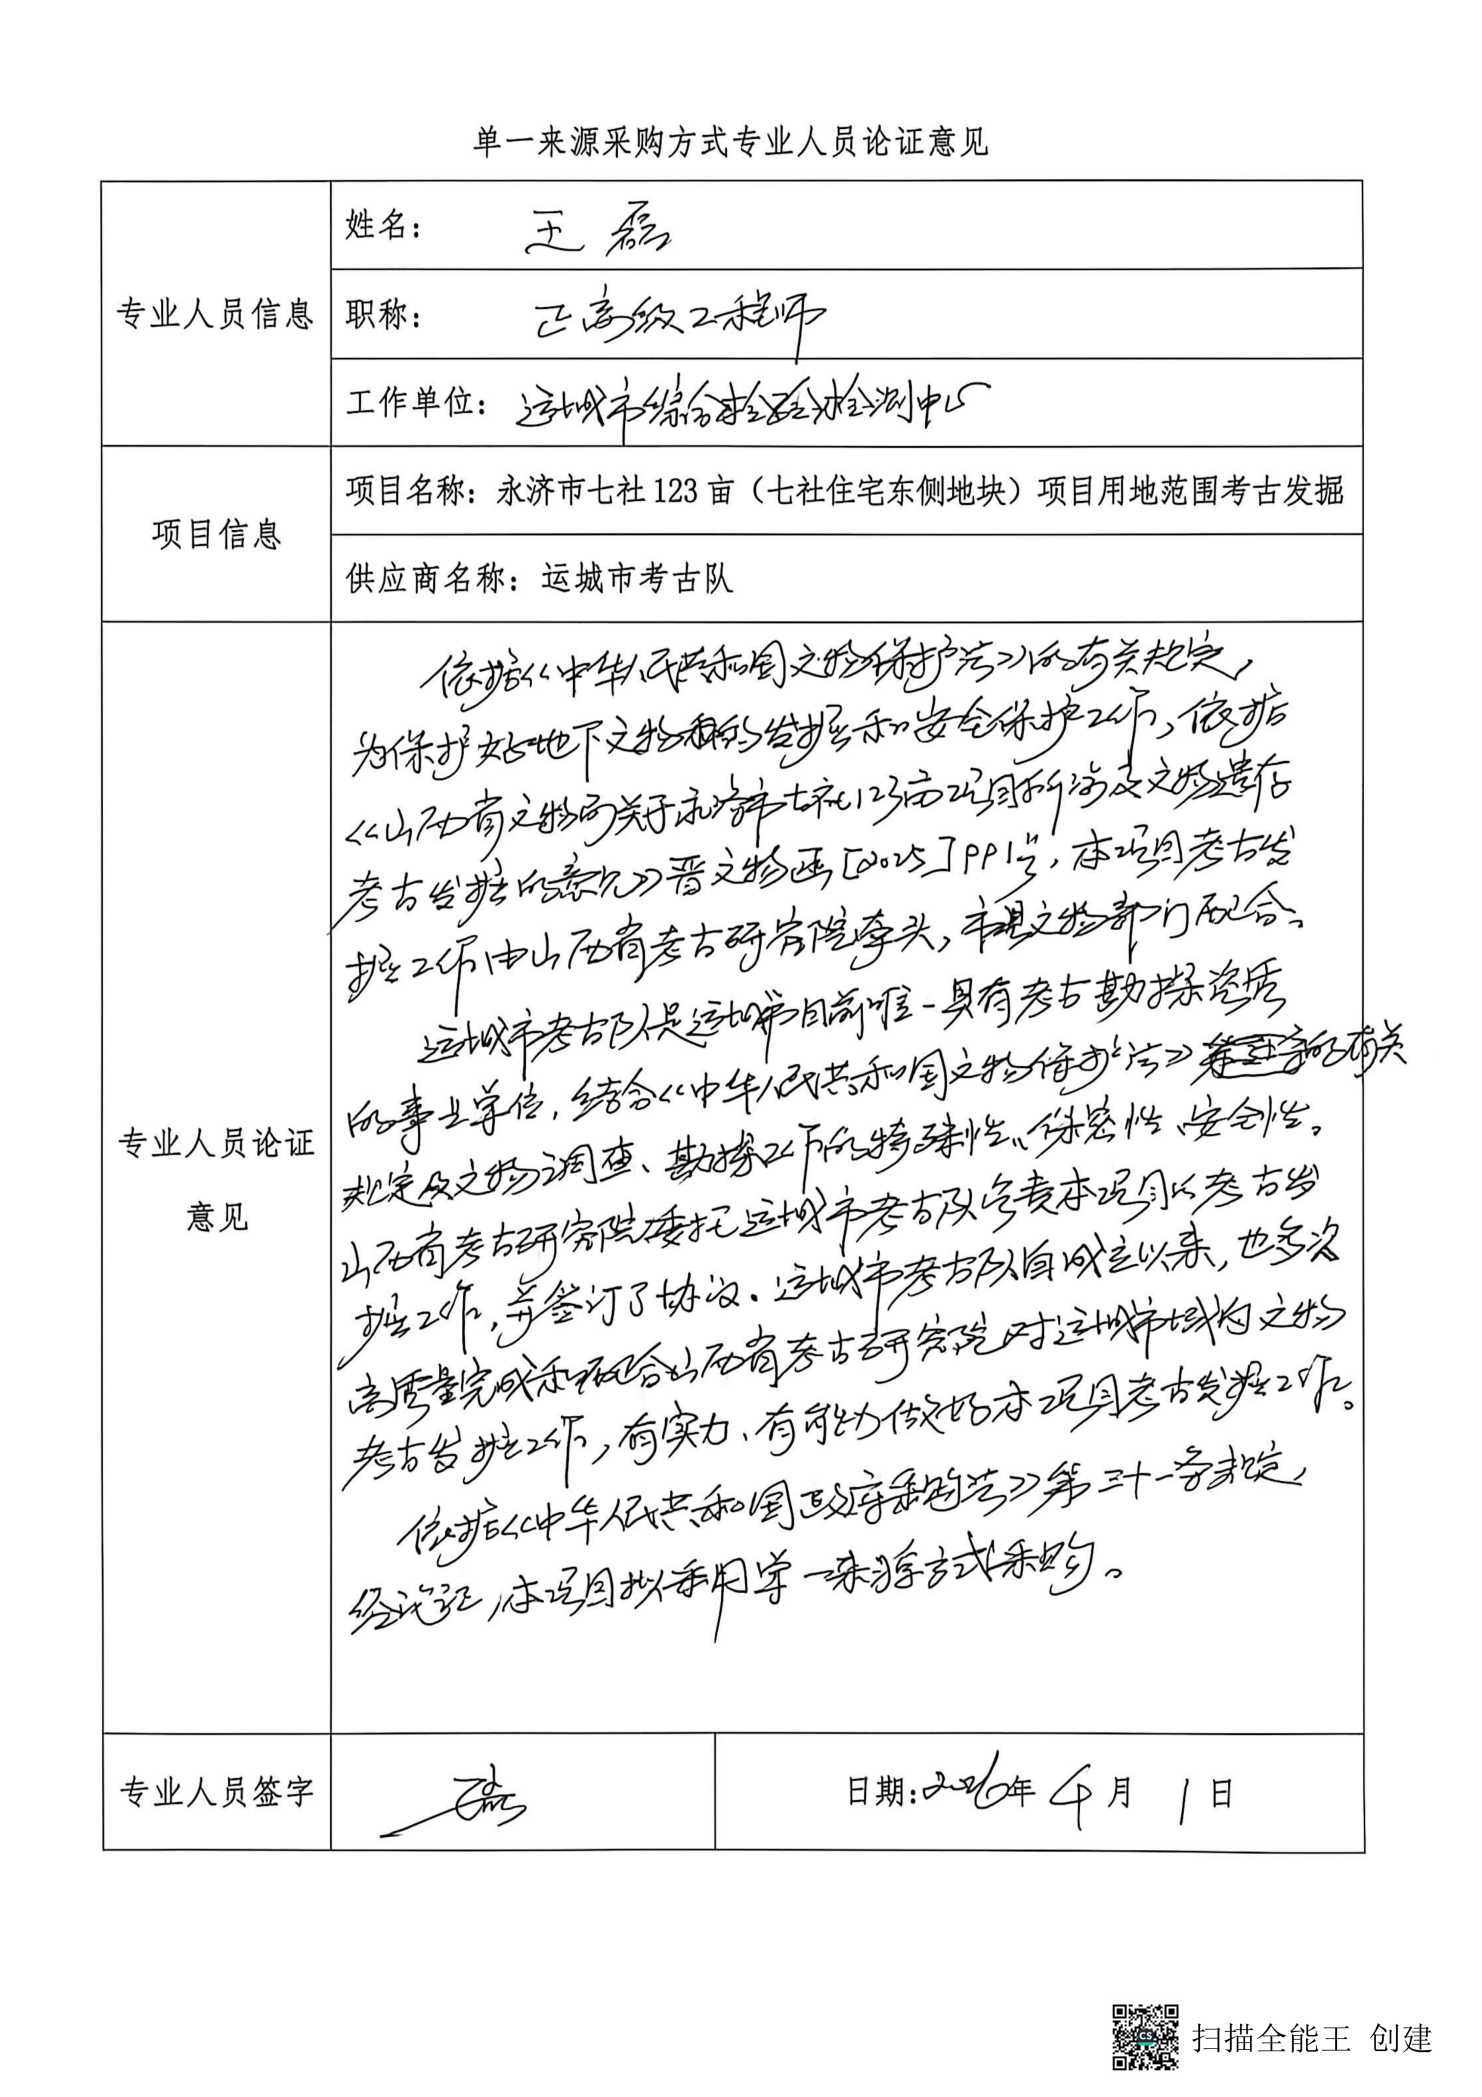 单一来源采购方式专业人员论证意见
专业人员信息
姓名： 王磊
职称： 正高级工程师
工作单位： 运城市综合检验检测中心
项目信息
项目名称：永济市七社123亩（七社住宅东侧地块）项目用地范围考古发掘
供应商名称：运城市考古队
专业人员论证
意见
依据《中华人民共和国文物保护法》的有关规定，
为保护好地下文物的发掘和安全保护工作，依据
《山西省文物局关于永济市七社123亩项目所涉及文物遗存
考古发掘的意见》晋文物函[2025]991号，本项目考古发
掘工作由山西省考古研究院牵头，市县文物部门配合。
运城市考古队是运城市目前唯一具有考古勘探资质
的事业单位，结合《中华人民共和国文物保护法》的有关
规定及文物调查、勘探工作的特殊性、保密性、安全性。
山西省考古研究院委托运城市考古队负责本项目的考古发
掘工作，并签订了协议。运城市考古队自成立以来，也多次
高质量完成和配合山西省考古研究院对运城市域内文物
考古发掘工作，有实力、有能力做好本项目考古发掘工作。
依据《中华人民共和国政府采购法》第三十一条规定，
经论证，本项目拟采用单一来源方式采购。
专业人员签字
王磊
日期：2026年 4月 1日
扫描全能王 创建